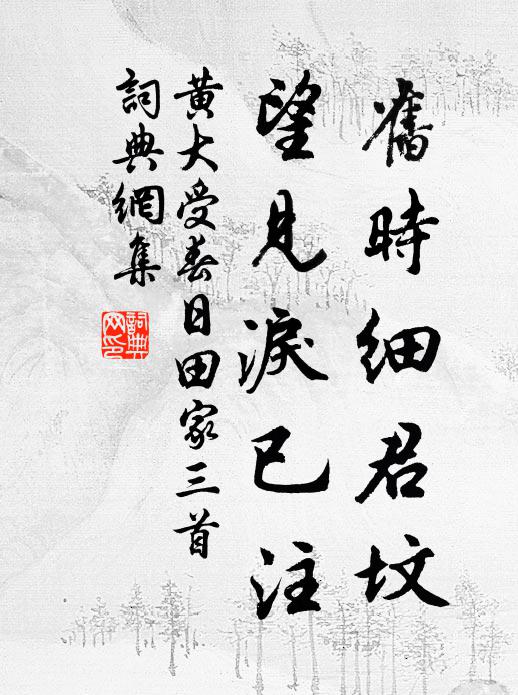 舊時細君墳
望見淚已注
黃大受春日田家三首
詞典網集
詞典網印